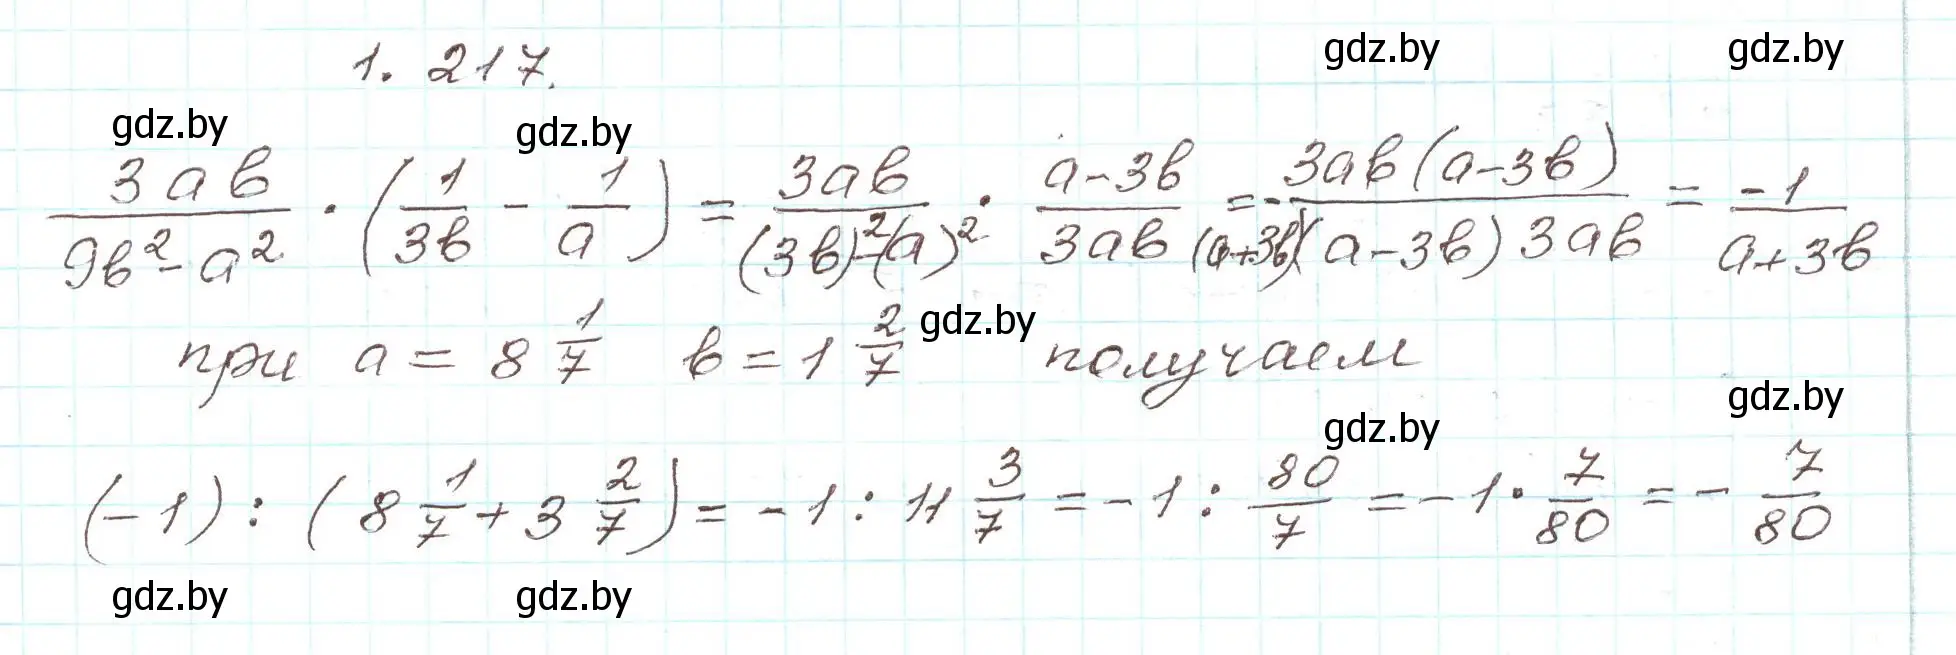 gdz.by gdz.by
1. 217.
gdz.by gdz.by
3ab/(9b²-a²) · (1/3b - 1/a) = 3ab/((3b)²-(a)²) · (a-3b)/3ab = -3ab(a-3b)/((a+3b)(a-3b)3ab) = -1/(a+3b)
gdz.by
при a = 8 1/7 b = 1 2/7 получаем
gdz.by
gdz.by
(-1) : (8 1/7 + 3 2/7) = -1 : 11 3/7 = -1 : 80/7 = -1 · 7/80 = - 7/80
gdz.by gdz.by